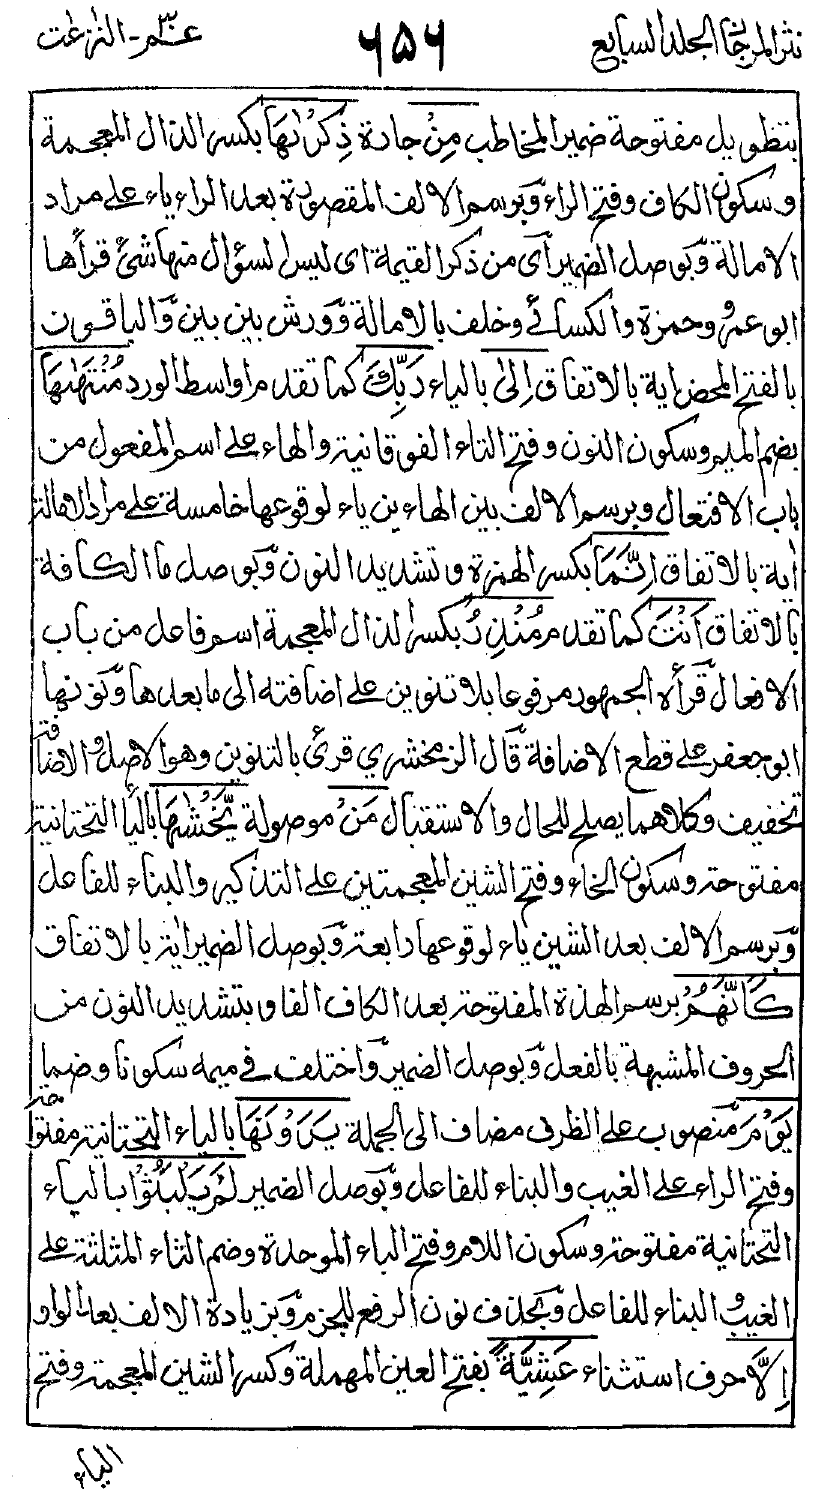 نثر المرجان الجلد السابع
٦٥٦
عمّ - النّزعٰت
بتطويل مفتوحة ضمير المخاطب مِنْ جارة ذِكْرٰىهَا بكسر الذال المعجمة
وسكون الكاف وفتح الراء وّبرسم الالف المقصورة بعد الراء ياء على مراد
الامالة وّبوصل الضمير آى من ذكر القيمة اى ليس السؤال منها شئ قرأها
ابو عمرو وحمزة والكسائے وخلف بالامالة وّورش بين بين وّالباقون
بالفتح المحض اية بالاتفاق اِلىٰ بالياء رَبِّكَ كما تقدم اواسط الورد مُنْتَهٰىهَا
بضم الميم وسكون النون وفتح التاء الفوقانية والهاء على اسم المفعول من
باب الافتعال وبرسم الالف بين الهاءين ياء لوقوعها خامسة على مراد الامالة
اٰية بالاتفاق اِنَّمَا بكسر الهمزة وتشديد النون وّبوصل ما الكافة
بالاتفاق اَنْتَ كما تقدم مُنْذِرُ بكسر الذال المعجمة اسم فاعل من باب
الافعال قّرأه الجمهور مرفوعا بلا تنوين على اضافته الى ما بعدها وّنونها
ابو جعفر على قطع الاضافة قّال الزمخشري قرئ بالتنوين وهو الاصل والاضافة
تخفيف وكلاهما يصلح للحال والاستقبال مَنْ موصولة يَّخْشٰىهَا بالياء التحتانية
مفتوحة وسكون الخاء وفتح الشين المعجمتين على التذكير والبناء للفاعل
وّبرسم الالف بعد الشين ياء لوقوعها رابعة وّبوصل الضمير اٰية بالاتفاق
كَاَنَّهُمْ برسم الهمزة المفتوحة بعد الكاف الفا وبتشديد النون من
الحروف المشبهة بالفعل وّبوصل الضمير وّاختلف في ميمه سكونا وضما
يَوْمَ منصوب على الظرف مضاف الى الجملة يَرَوْنَهَا بالياء التحتانية مفتوحة
وفتح الراء على الغيب والبناء للفاعل وّبوصل الضمير لَمْ يَلْبَثُوْا بالياء
التحتانية مفتوحة وسكون اللام وفتح الباء الموحدة وضم الثاء المثلثة على
الغيب والبناء للفاعل وّبحذف نون الرفع للجزم وّبزيادة الالف بعد الواو
اِلَّا حرف استثناء عَشِيَّةً بفتح العين المهملة وكسر الشين المعجمة وفتح
الياء